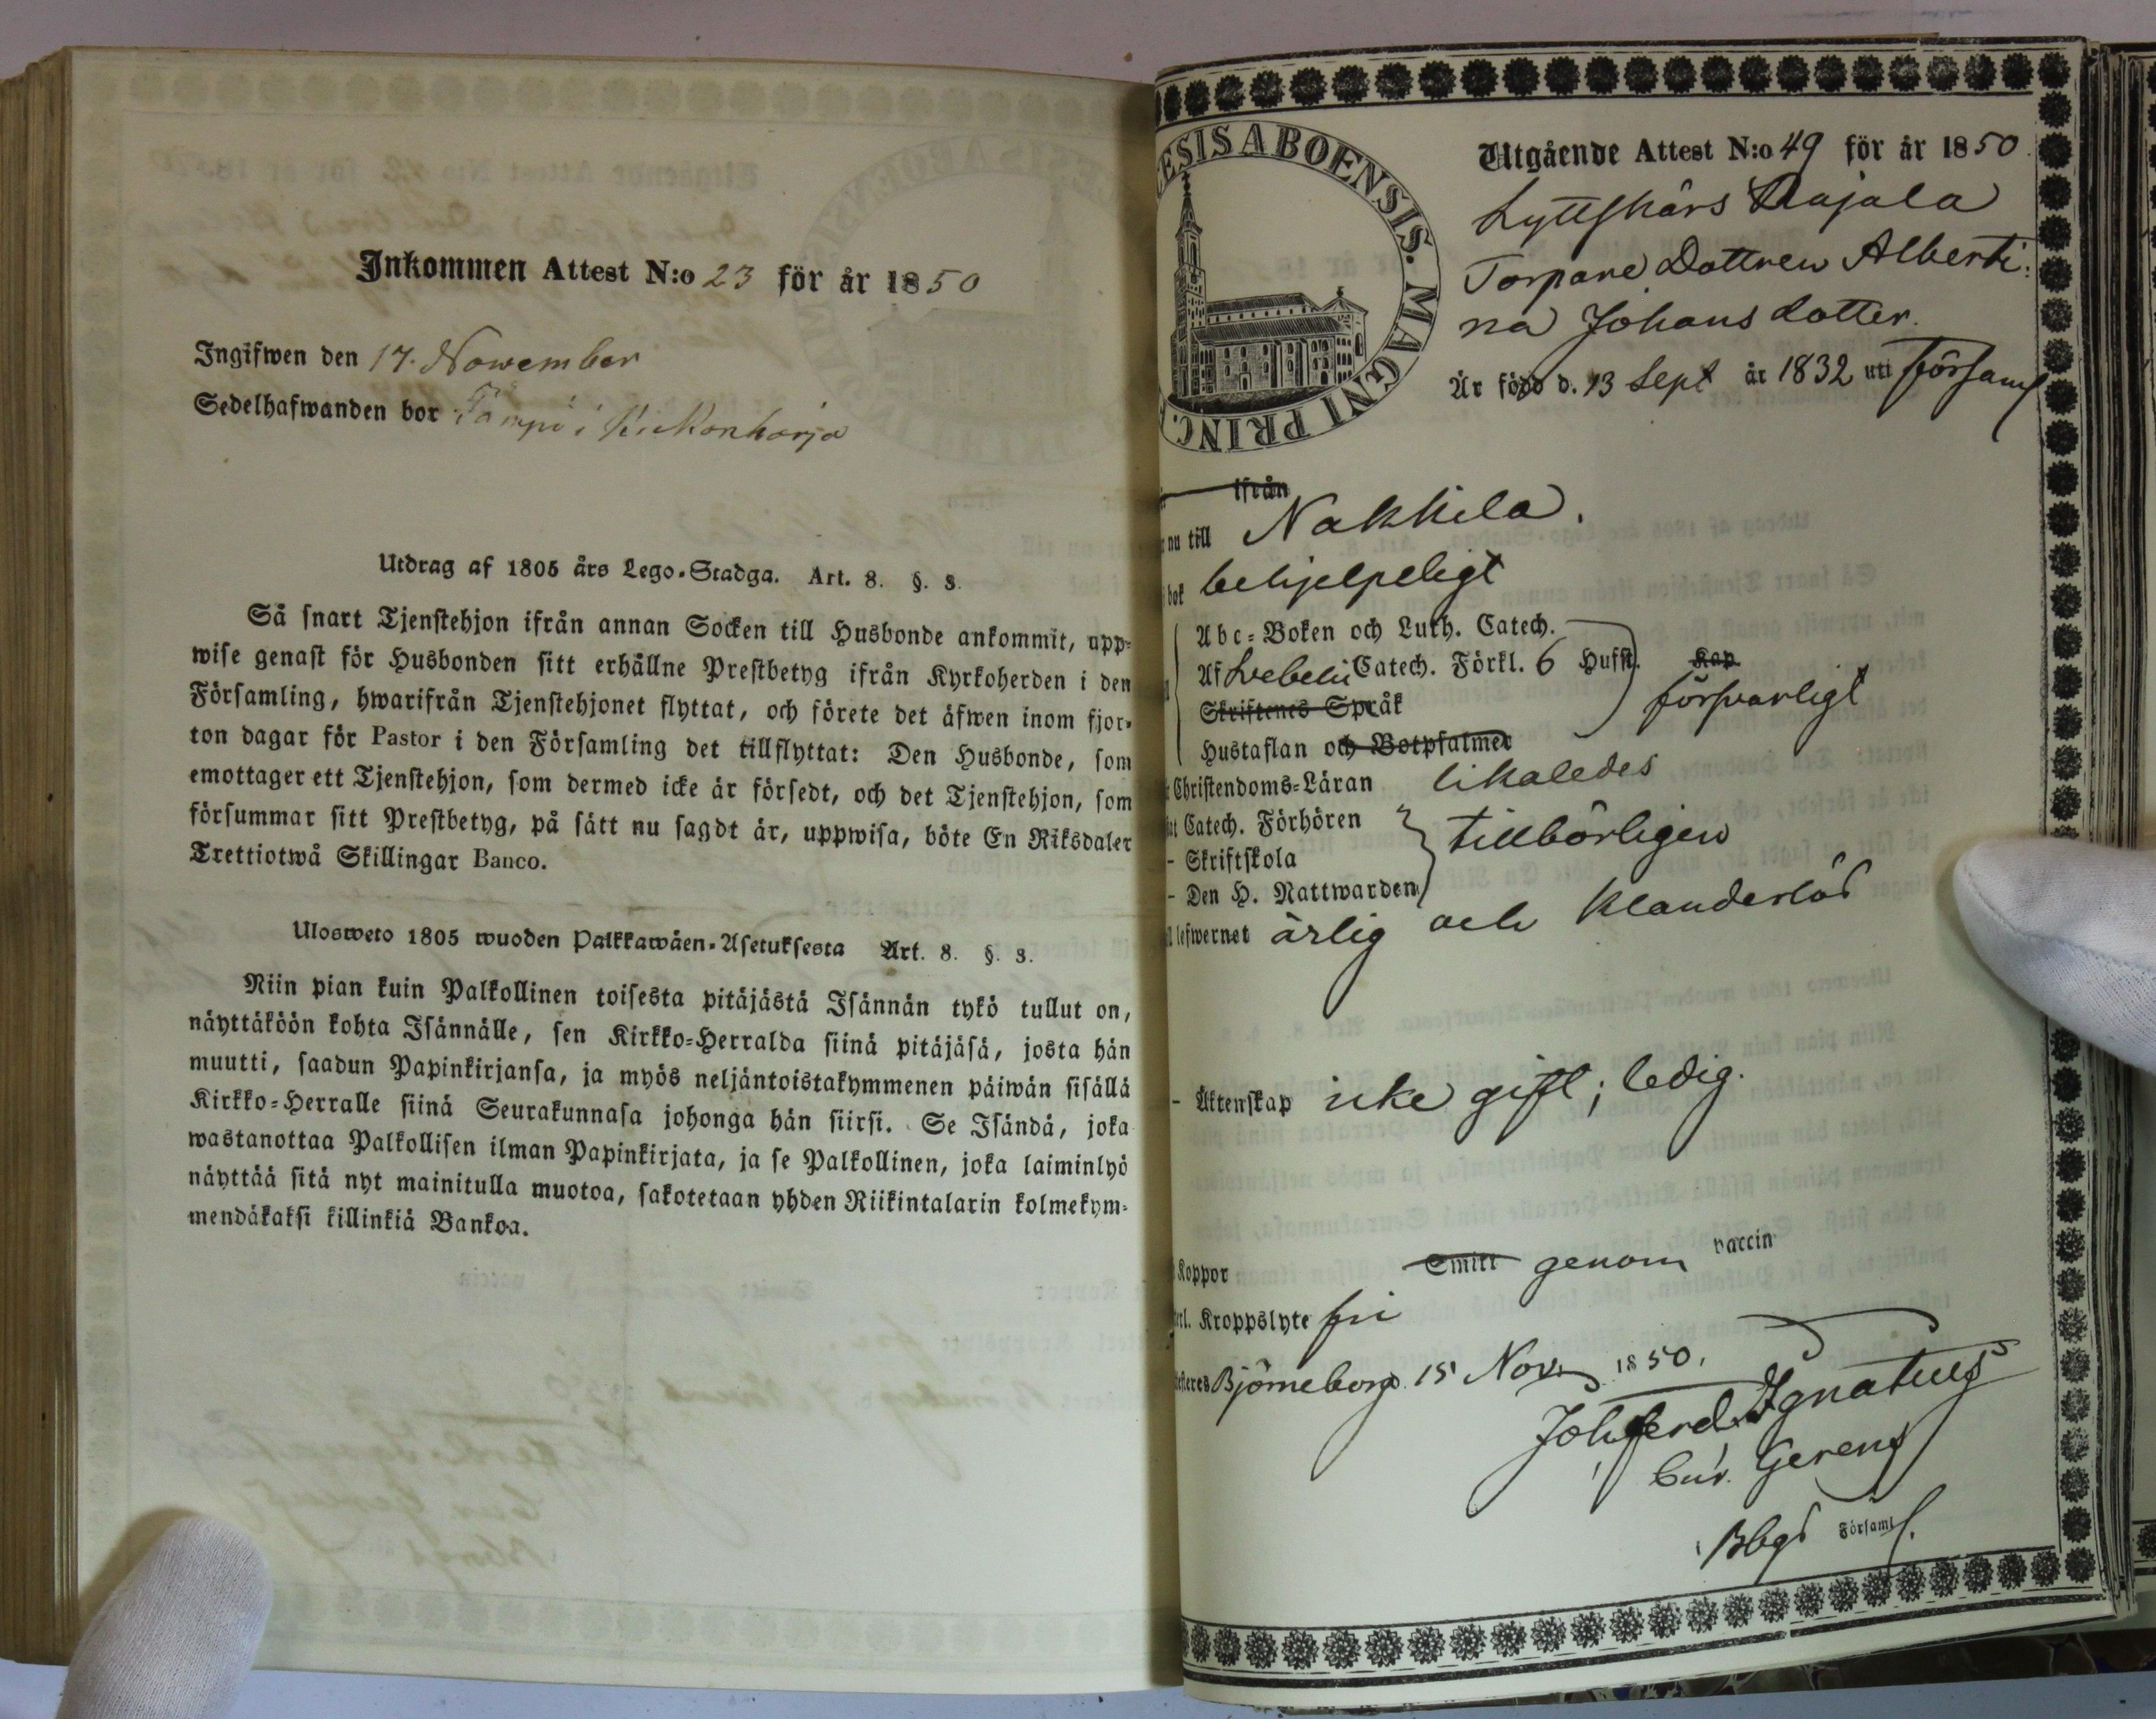 Inkommen Attest N:o 23 för år 1850
Ingifwen den 17. November
Sedelhafwanden bor i Kiikonharja
Utdrag af 1805 års Lego-Stadga. Art. 8. §. 3.
Så snart Tjenstehjon ifrån annan Socken till Husbonde ankommit, upp-
wise genast för Husbonden sitt erhållne Prestbetyg ifrån Kyrkoherden i den
Församling, hwarifrån Tjenstehjonet flyttat, och förete det äfwen inom fjor-
ton dagar för Pastor i den Församling det tillflyttat: Den Husbonde, som
emottager ett Tjenstehjon, som dermed icke är försedt, och det Tjenstehjon, som
försummar sitt Prestbetyg, på sätt nu sagdt är, uppwisa, böte En Riksdaler
Trettiotwå Skillingar Banco.
Ulosweto 1805 wuoden Palkkawäen-Asetuksesta Art. 8. §. 3.
Niin pian kuin Palkollinen toisesta pitäjästä Isännän tykö tullut on,
näyttäköön kohta Isännälle, sen Kirkko-Herralda siinä pitäjäsä, josta hän
muutti, saadun Papinkirjansa, ja myös neljäntoistakymmenen päiwän sisällä
Kirkko-Herralle siinä Seurakunnasa johonga hän siirsi. Se Isändä, joka
wastanottaa Palkollisen ilman Papinkirjata, ja se Palkollinen, joka laiminlyö
näyttää sitä nyt mainitulla muotoa, sakotetaan yhden Riikintalarin kolmekym-
mendäkaksi killinkiä Bankoa.
ESIS ABOENSIS. MAGNI PRINC.
Utgående Attest N:o 49 för år 1850.
Lyttskärs Rajala
Torpare Dottren Alberti:
na Johansdotter.
Är född d. 13 Sept år 1832 uti Församl
ifrån
nu till Nakkila.
bok behjelpeligt
Abc-Boken och Luth. Catech.
Af Svebelii Catech. Förkl. 6 Hufst. Kap
Skriftenes Språk försvarligt
Hustaflan och Botpsalmer
Christendoms-Läran likaledes
Catech. Förhören
- Skriftskola tillbörligen
- Den H. Nattwarden
lefwernet ärlig och klanderlös
- Äktenskap icke gift; ledig.
Koppor Smitt genom vaccin
Kroppslyte fri
Björneborg 15 Nov. 1850.
Joh Ferd. Ignatius
Cur. Gerens
Bbgs Församl.